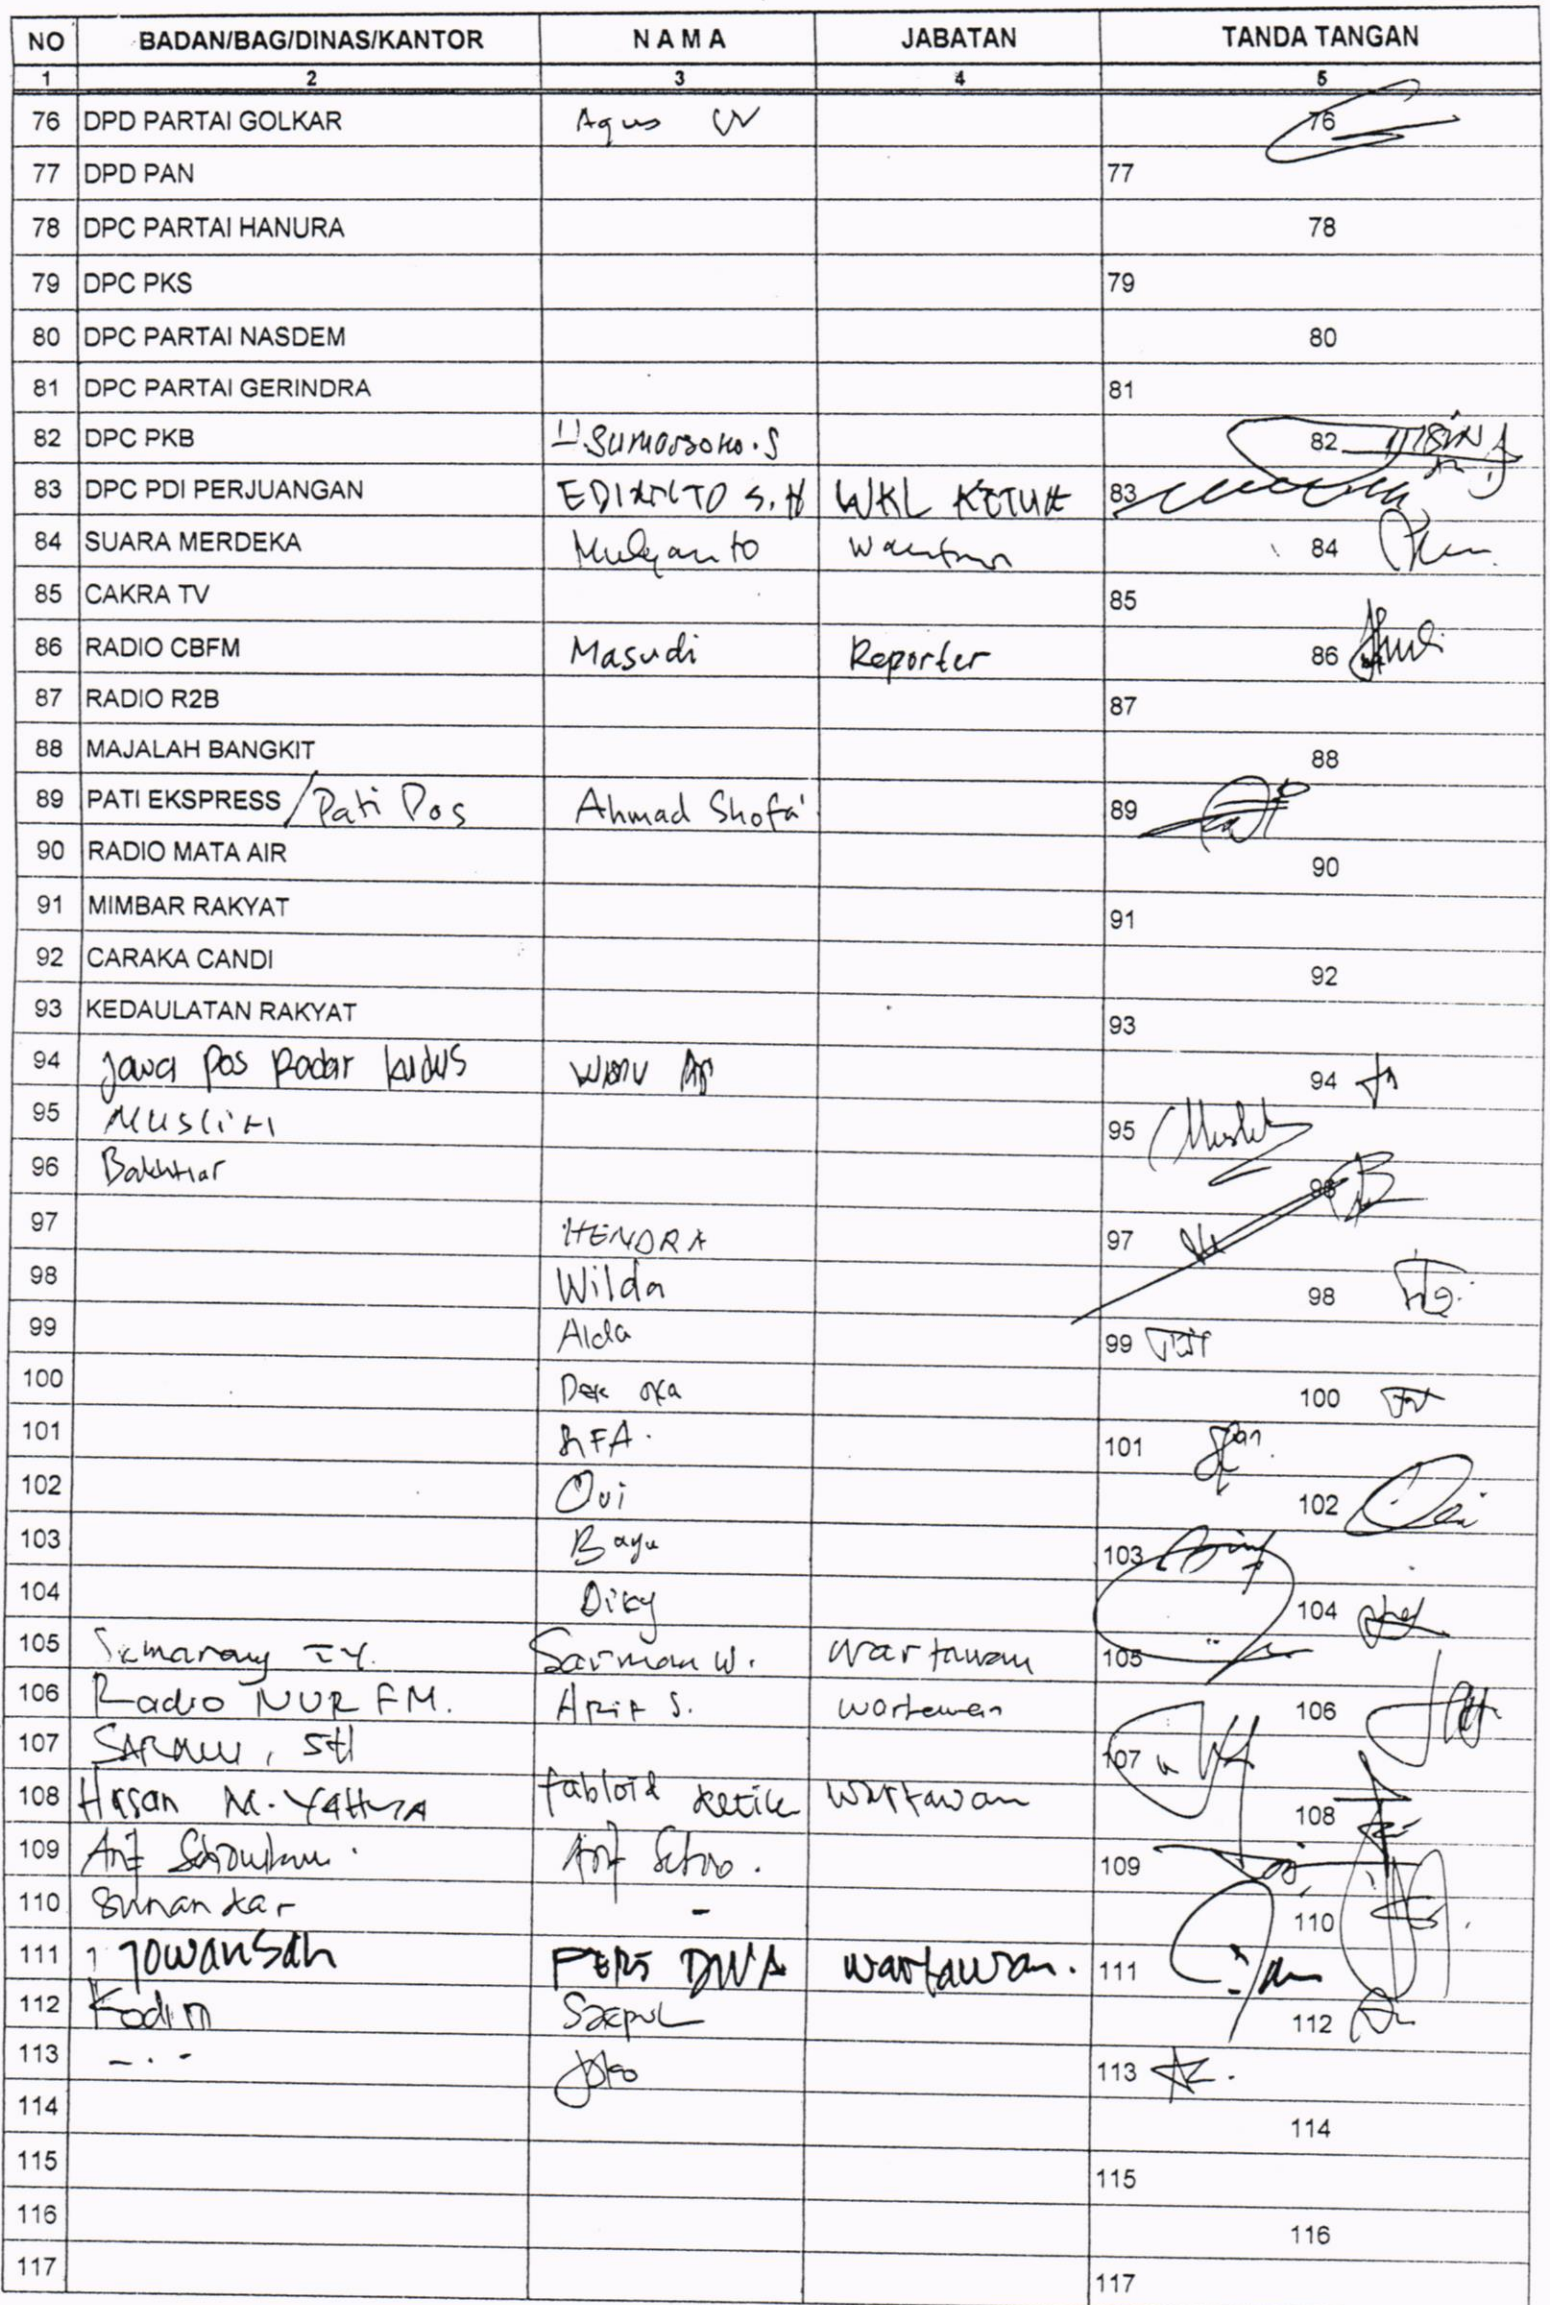 NO BADAN/BAG/DINAS/KANTOR NAMA JABATAN TANDA TANGAN
1 2 3 4 5
76 DPD PARTAI GOLKAR Agus W 76
77 DPD PAN 77
78 DPC PARTAI HANURA 78
79 DPC PKS 79
80 DPC PARTAI NASDEM 80
81 DPC PARTAI GERINDRA 81
82 DPC PKB Sumarsono.S 82
83 DPC PDI PERJUANGAN S.H WKL KETUA 83
84 SUARA MERDEKA Mulyanto 84
85 CAKRA TV 85
86 RADIO CBFM Masudi Reporter 86
87 RADIO R2B 87
88 MAJALAH BANGKIT 88
89 PATI EKSPRESS /Pati Pos Ahmad Shofa' 89
90 RADIO MATA AIR 90
91 MIMBAR RAKYAT 91
92 CARAKA CANDI 92
93 KEDAULATAN RAKYAT 93
94 Jawa Pos Radar kudus 94
95 MUSLIH 95
96 Bakhtiar 96
97 HENDRA 97
98 Wilda 98
99 Alda 99
100 Dek oka 100
101 101
102 Ovi 102
103 Bayu 103
104 Diky 104
105 Semarang TV. Sarman W. wartawan 105
106 Radio NUR FM. Arif S. wartawan 106
107 107
108 Hasan M. Yahya tabloid wartawan 108
109 109
110 Sunankar - 110
111 Jowansah PERS wartawan. 111
112 Kodim Saepul 112
113 - . - Joko 113
114 114
115 115
116 116
117 117